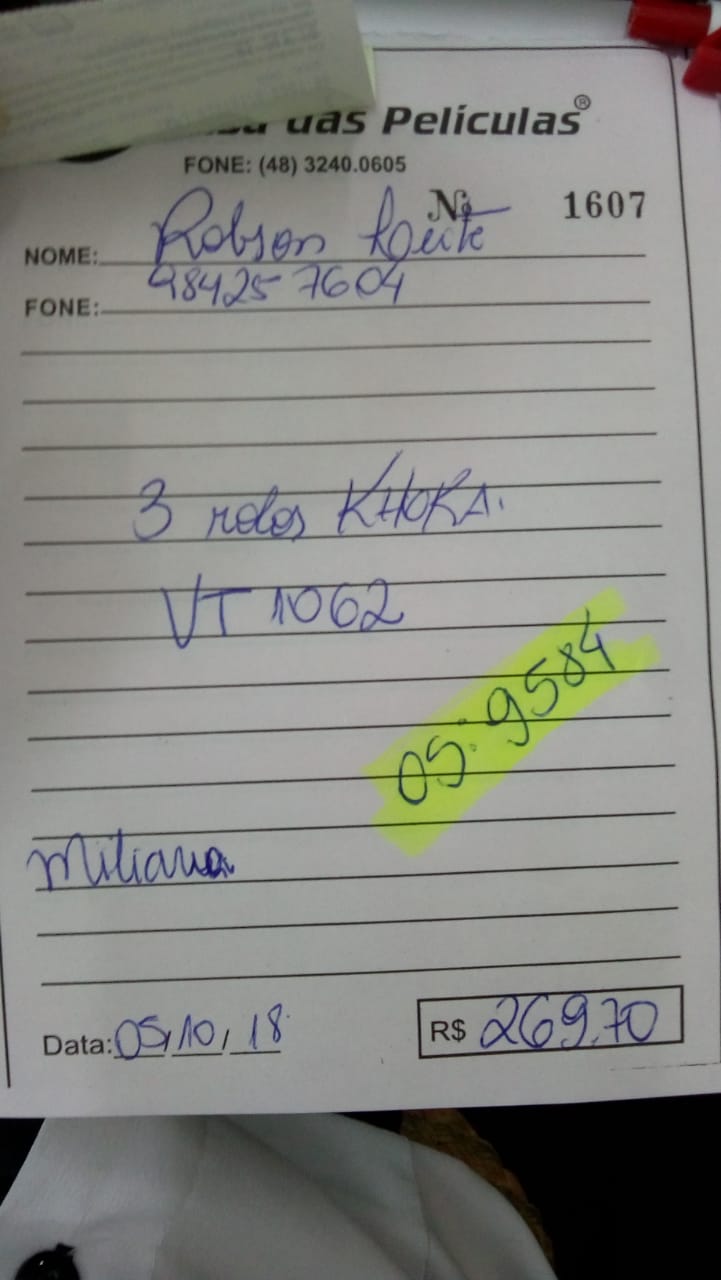 das Películas®
FONE: (48) 3240.0605
Nº 1607
NOME: Robson Leite
FONE: 984257604
3 rolos KHORA.
VT 1062
OS: 9584
Miliana
Data: 05/10/18
R$ 269,70